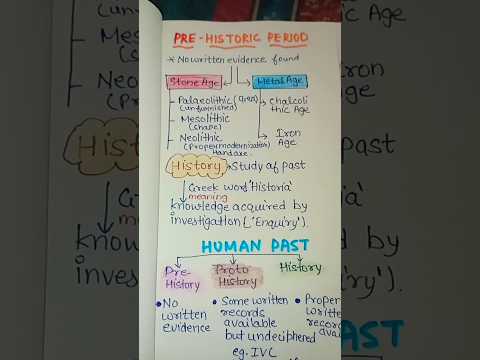 PRE-HISTORIC PERIOD
* No written evidence found
Stone Age
Metal Age
Palaeolithic
(unfurnished)
Mesolithic
(shape)
Neolithic
(Proper modernization)
Handaxe
Chalcoli
thic Age
Iron
Age
History → Study of past
Greek word 'Historia'
meaning
knowledge acquired by
investigation ['Enquiry'].
HUMAN PAST
Pre-
History
Proto
History
History
• No
written
evidence
• Some written
records
available
but undeciphered
eg. IVC
• Proper
writte
recor
avai